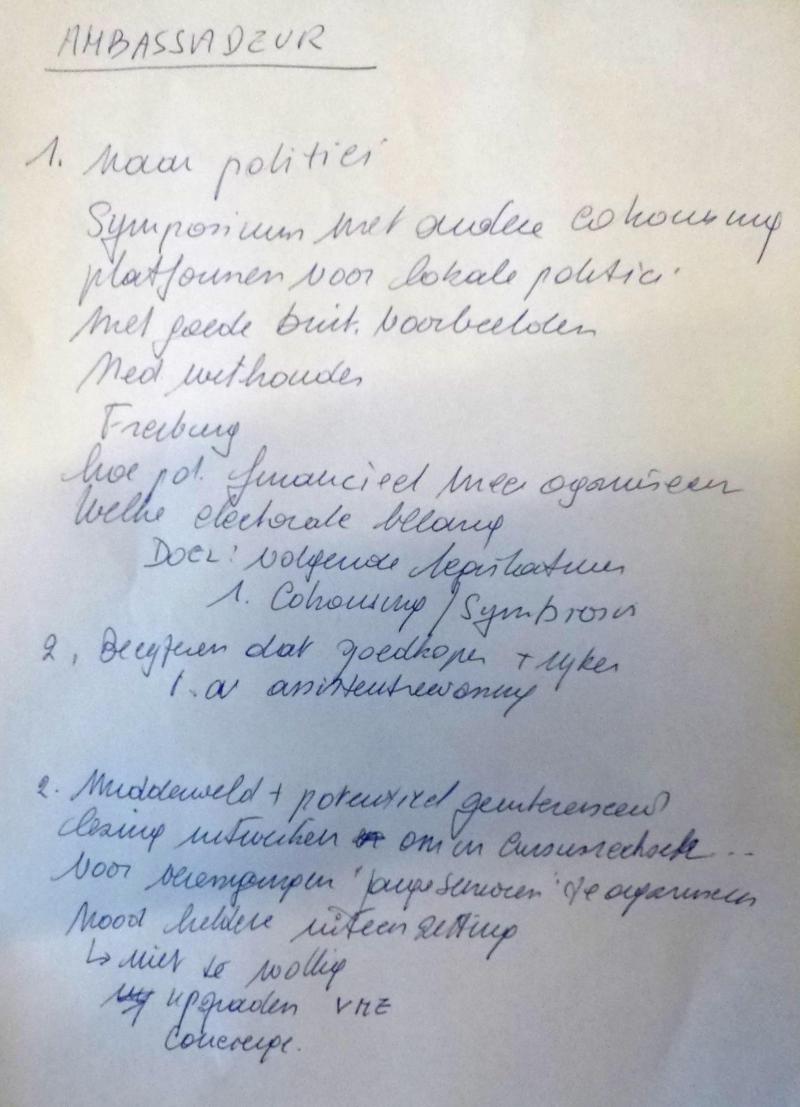 AMBASSADEUR
1. Naar politici
Symposium met andere cohousing
platformen voor lokale politici
met goede buit. voorbeelden
Ned wethouder
Freiburg
hoe pol. financieel mee organiseren
Welke electorale belang
DOEL: volgende legislatuur
1. Cohousing / Symbiosen
2. Becijferen dat goedkoper + rijker
1. assistentiewoning
2. Middenveld + potentieel geinteresseerd
lezing uitwerken om in
voor verenigingen 'jonge senioren' te organiseren
Nood heldere uiteenzetting
↳ niet te wollig
upgraden VME
Concierge.